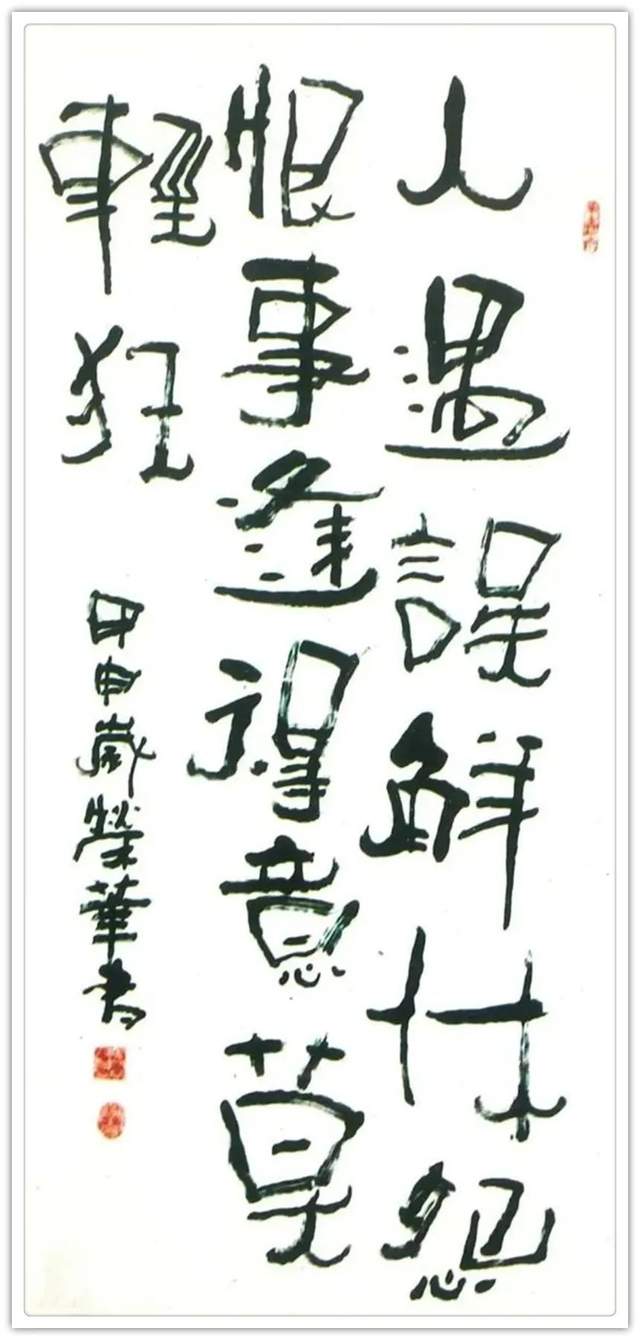 人遇誤觧休怨
恨事逢得意莫
輕狂
甲申歲榮華書